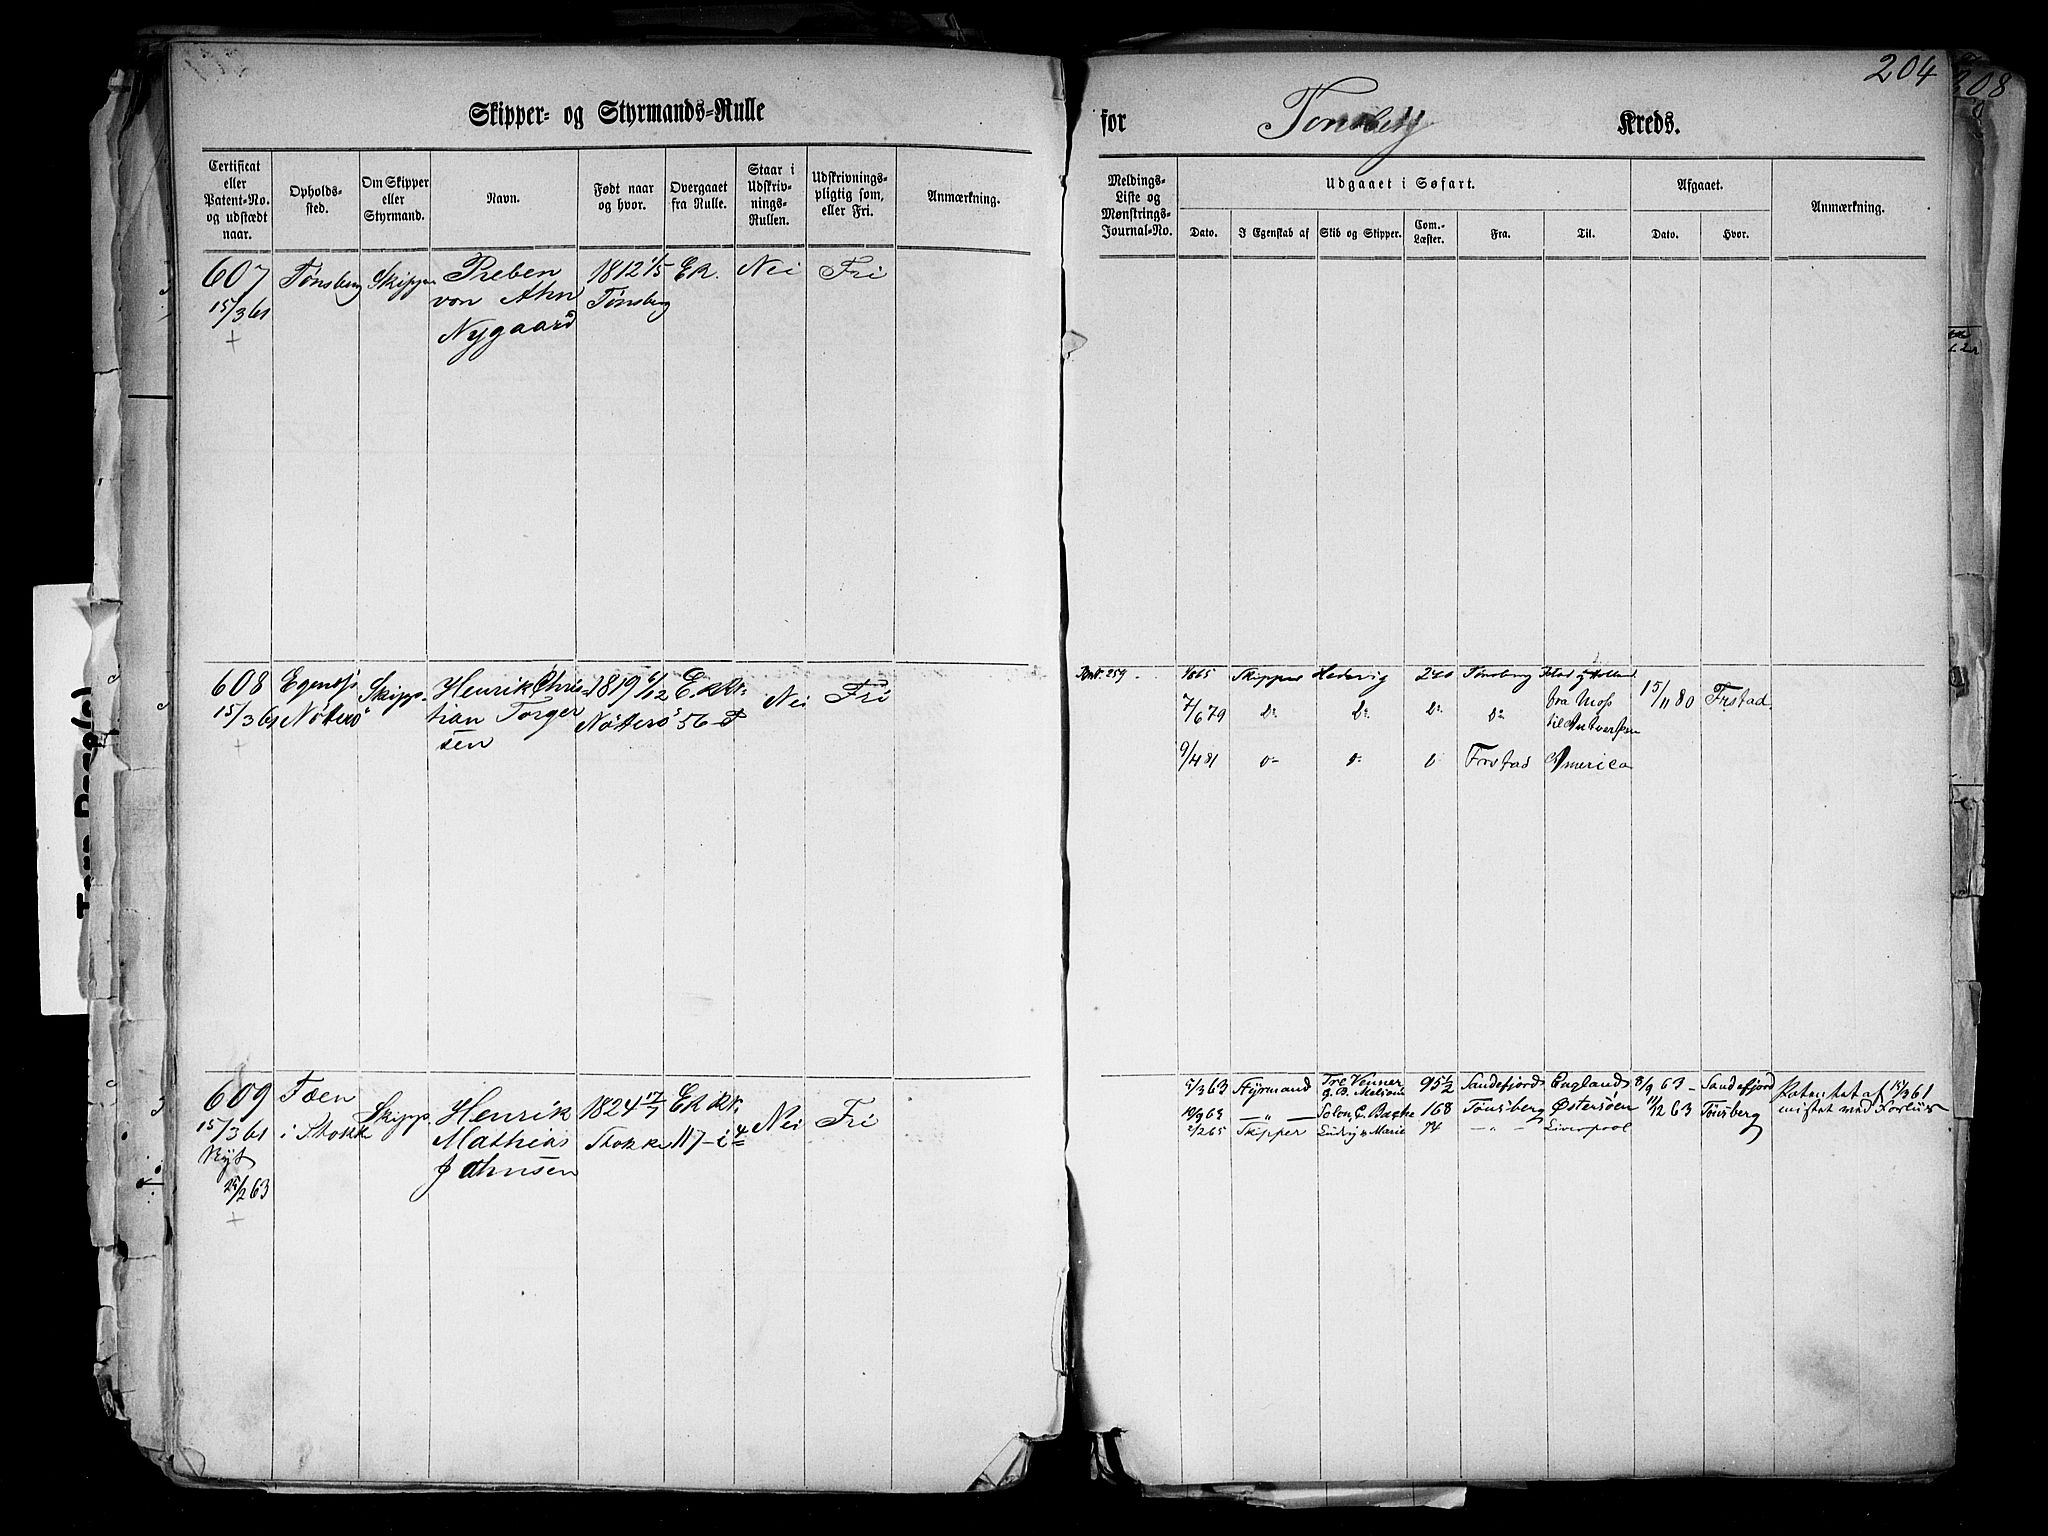 204
208
Skipper- og Styrmands-Rulle
for Tønsberg Kreds.
Certificat eller Patent-No. og udstædt naar.
Opholds-sted.
Om Skipper eller Styrmand.
Navn.
Født naar og hvor.
Overgaaet fra Rulle.
Staar i Udskriv-nings-Rullen.
Udskrivnings-pligtig som, eller Fri.
Anmærkning.
Meldings-Liste og Mønstrings-Journal-No.
Udgaaet i Søfart.
Dato.
I Egenskab af
Skib og Skipper.
Com.-Læster.
Fra.
Til.
Afgaaet.
Dato.
Hvor.
Anmærkning.
607 Tønsberg Skipper Preben 1812 1/5 ER. Nei Fri
15/3 61 von Ahn Tønsberg
+ Nygaard
608 Skipp. Henrik Chris 1819 6/12 Nei Fri
15/3 61 Nøterö tian Torger Nøterö 56-P
+ sen
259. Skipper Hedevig 240 Tønsberg 15/11 80 Frstad
7/6 79 Do Do Do Do fra Moss
til Antwerpen
9/4 81 Do Do Do Frstad America
609 Fæen Skipp. Henrik 1824 17/7 ER Nei Fri
15/3 61 i Stokke Mathias Stokke 117-i
Nyt Jahnsen
25/2 63
+
5/3 63 Styrmand Tre Venner 95 1/2 Sandefjord England 8/9 63 - Sandefjord Patentet af 15/3 61
Solon 168 Tønsberg Østersøen 11/12 63 Tønsberg mistet med Forliis
2/2 65 Skipper Ludvig Marie 74 - " - Liverpool